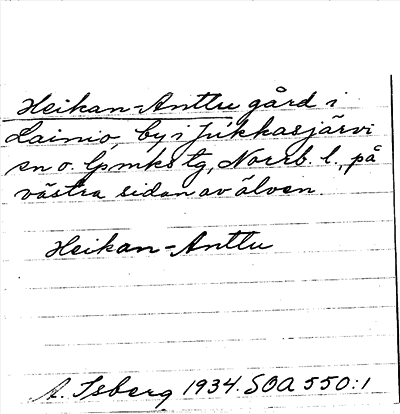 Heikan-Anttu gård i
Lainio, by i Jukkasjärvi
sn o. lpmks tg, Norrb. l., på
västra sidan av älven.
Heikan-Anttu
A. Isberg 1934. SOA 550:1